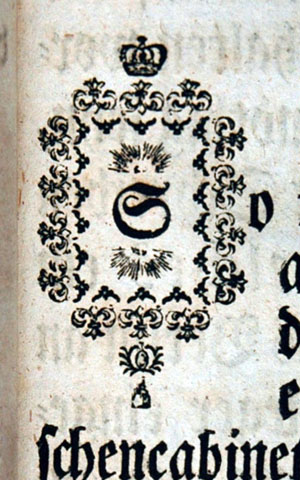 So
a
d
e
schencabinet